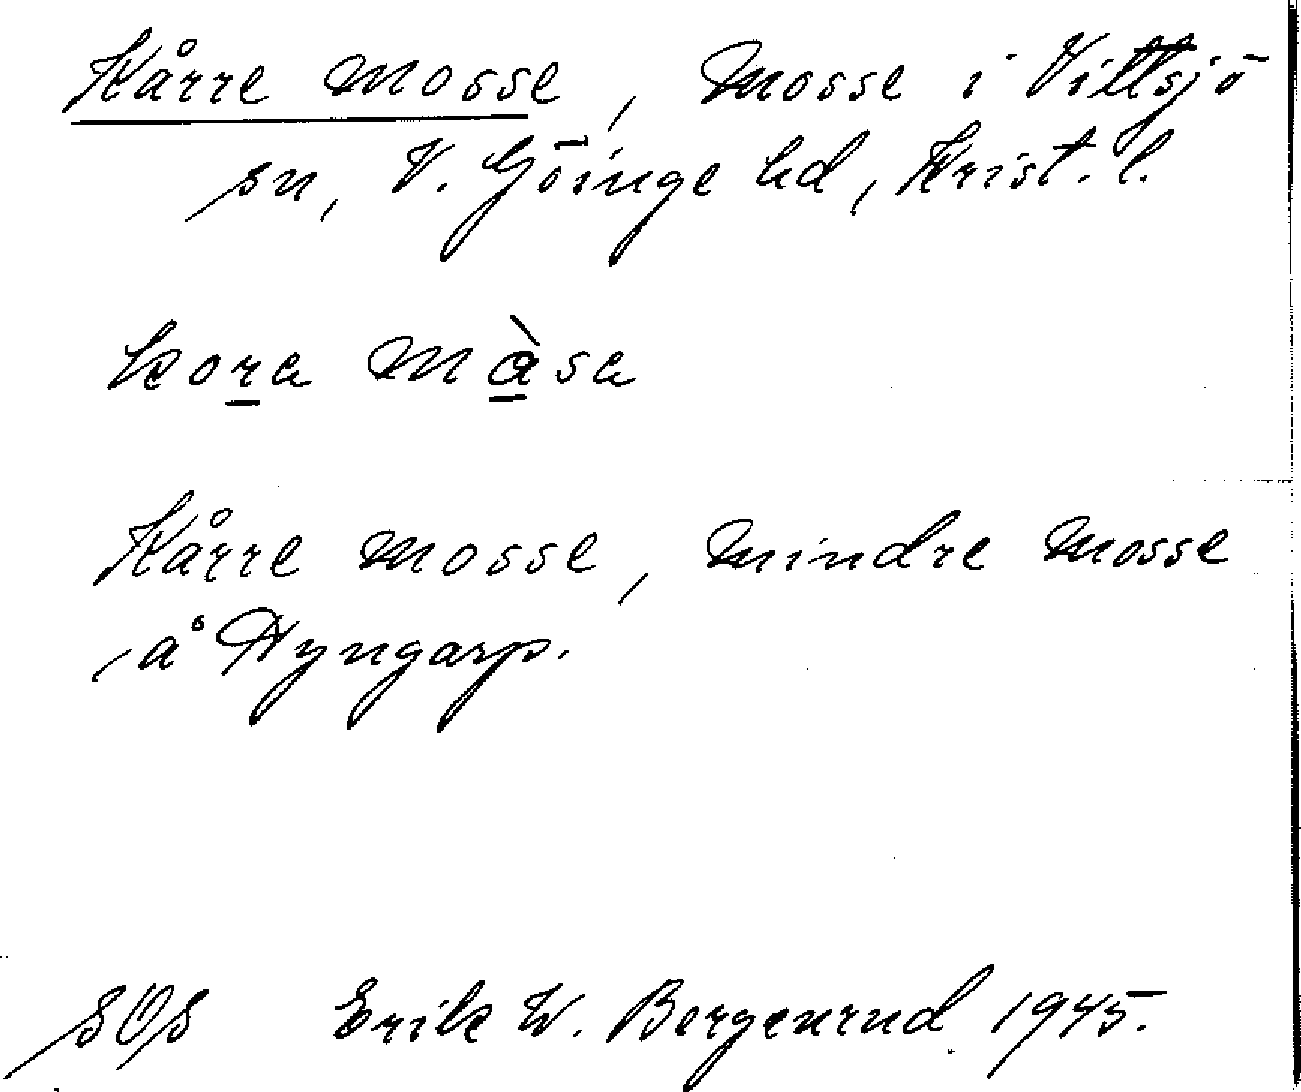 Kårre mosse, mosse i Vittsjö
sn, V. Göinge hd, Krist. l.
kora màsa
Kårre mosse, mindre mosse
å Hyngarp.
SOS Erik W. Bergenrud 1945.